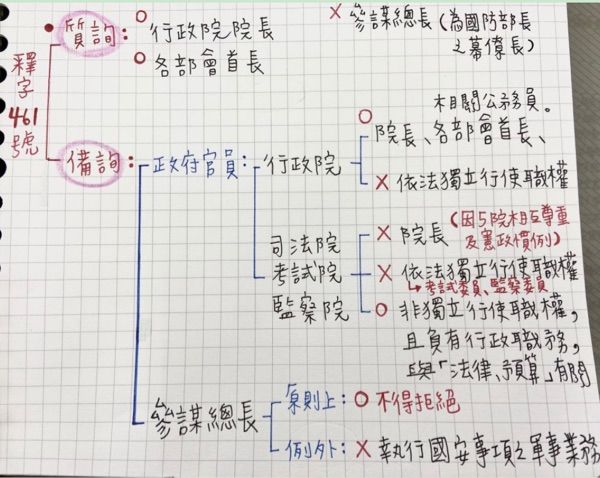 釋字461號
質詢：
○ 行政院院長
○ 各部會首長
× 參謀總長（為國防部長
之幕僚長）
備詢：
政府官員：
行政院
○ 院長、各部會首長、
相關公務員。
× 依法獨立行使職權
司法院
考試院
監察院
× 院長（因5院相互尊重
及憲政慣例）
× 依法獨立行使職權
↳考試委員、監察委員
○ 非獨立行使職權，
且負有行政職務，
與「法律、預算」有關
參謀總長
原則上：○ 不得拒絕
例外：× 執行國安事項之軍事業務